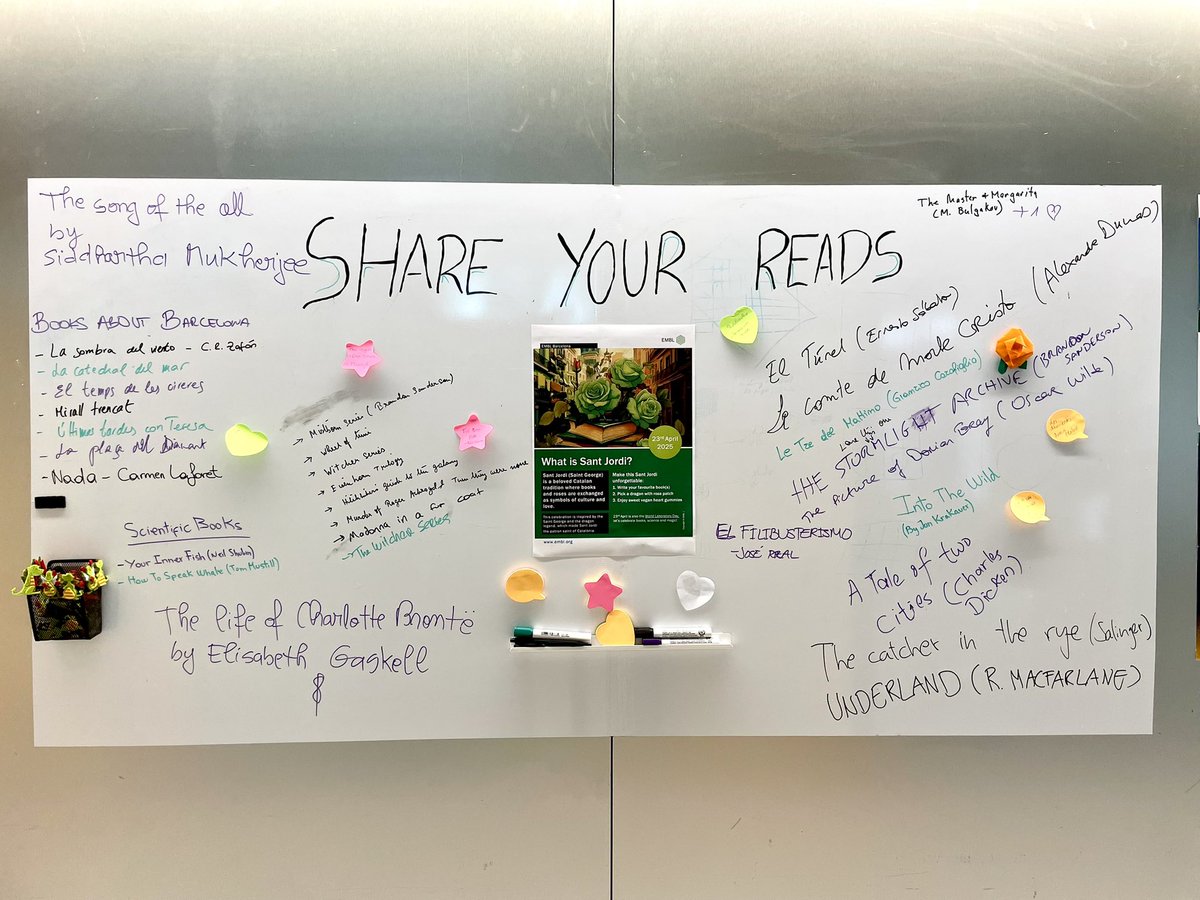 The song of the cell
by
Siddhartha Mukherjee
SHARE YOUR READS
The Master & Margarita
(M. Bulgakov) +1 ♡
BOOKS ABOUT BARCELONA
- La sombra del viento - C.R. Zafón
- La catedral del mar
- El temps de les cireres
- Mirall trencat
- Últimas tardes con Teresa
- La plaça del Diamant
- Nada - Carmen Laforet
SCIENTIFIC BOOKS
- Your Inner Fish (Neil Shubin)
- How To Speak Whale (Tom Mustill)
→ Mistborn Series (Brandon Sanderson)
→ Wheel of Time
→ Witcher Series
→ Hitchhiker's guide to the galaxy
→ Murder of Roger Ackroyd & Then they were none
→ Madonna in a fur coat
→ The Witcher Series
The life of Charlotte Brontë
by Elisabeth Gaskell
EMBL Barcelona
EMBL
23rd April
2025
What is Sant Jordi?
Sant Jordi (Saint George)
is a beloved Catalan
tradition where books
and roses are exchanged
as symbols of culture and
love.
This celebration is inspired by the
Saint George and the dragon
legend, which made Sant Jordi
the patron saint of Catalonia
Make this Sant Jordi
unforgettable:
1. Write your favourite book(s)
2. Pick a dragon with rose patch
3. Enjoy sweet vegan heart gummies
23rd April is also the World Laboratory Day,
let's celebrate books, science and magic!
www.embl.org
El Túnel (Ernesto Sábato)
le Comte de Monte Cristo (Alexandre Dumas)
Le Tre del Mattino (Gianrico Carofiglio)
THE STORMLIGHT ARCHIVE (BRANDON SANDERSON)
The Picture of Dorian Gray (Oscar Wilde)
Into The Wild
(By Jon Krakauer)
EL FILIBUSTERISMO
- JOSÉ RIZAL
A Tale of two
cities (Charles
Dicken)
The catcher in the rye (Salinger)
UNDERLAND (R. MACFARLANE)